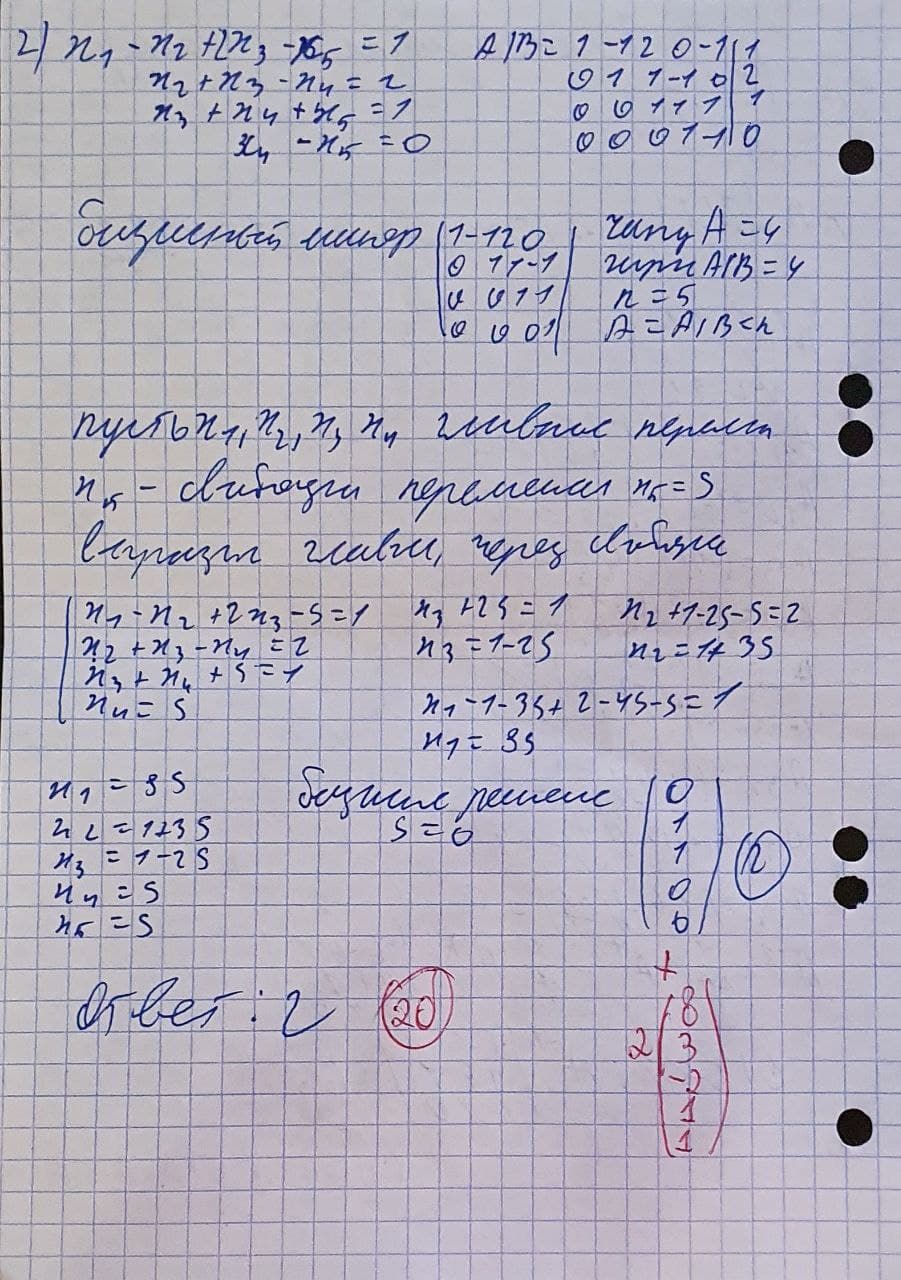 2) x₁ - x₂ + 2x₃ - x₅ = 1
x₂ + x₃ - x₄ = 2
x₃ + x₄ + x₅ = 1
x₄ - x₅ = 0
A|B = 1 -1 2 0 -1 | 1
0 1 1 -1 0 | 2
0 0 1 1 1 | 1
0 0 0 1 -1 | 0
базисный минор
1 -1 2 0
0 1 1 -1
0 0 1 1
0 0 0 1
ранг A = 4
ранг A|B = 4
n = 5
A = A|B < n
пусть x₁, x₂, x₃ x₄ главные перемен
x₅ - свободн перемен x₅ = S
выразим главн, через свободн
x₁ - x₂ + 2x₃ - S = 1
x₂ + x₃ - x₄ = 2
x₃ + x₄ + S = 1
x₄ = S
x₃ + 2S = 1
x₃ = 1 - 2S
x₂ + 1 - 2S - S = 2
x₂ = 1 + 3S
x₁ - 1 - 3S + 2 - 4S - S = 1
x₁ = 8S
x₁ = 8S
x₂ = 1 + 3S
x₃ = 1 - 2S
x₄ = S
x₅ = S
базисное решение
S = 0
0
1
1
0
0
2
Ответ: 2
20
+
2
8
3
-2
1
1